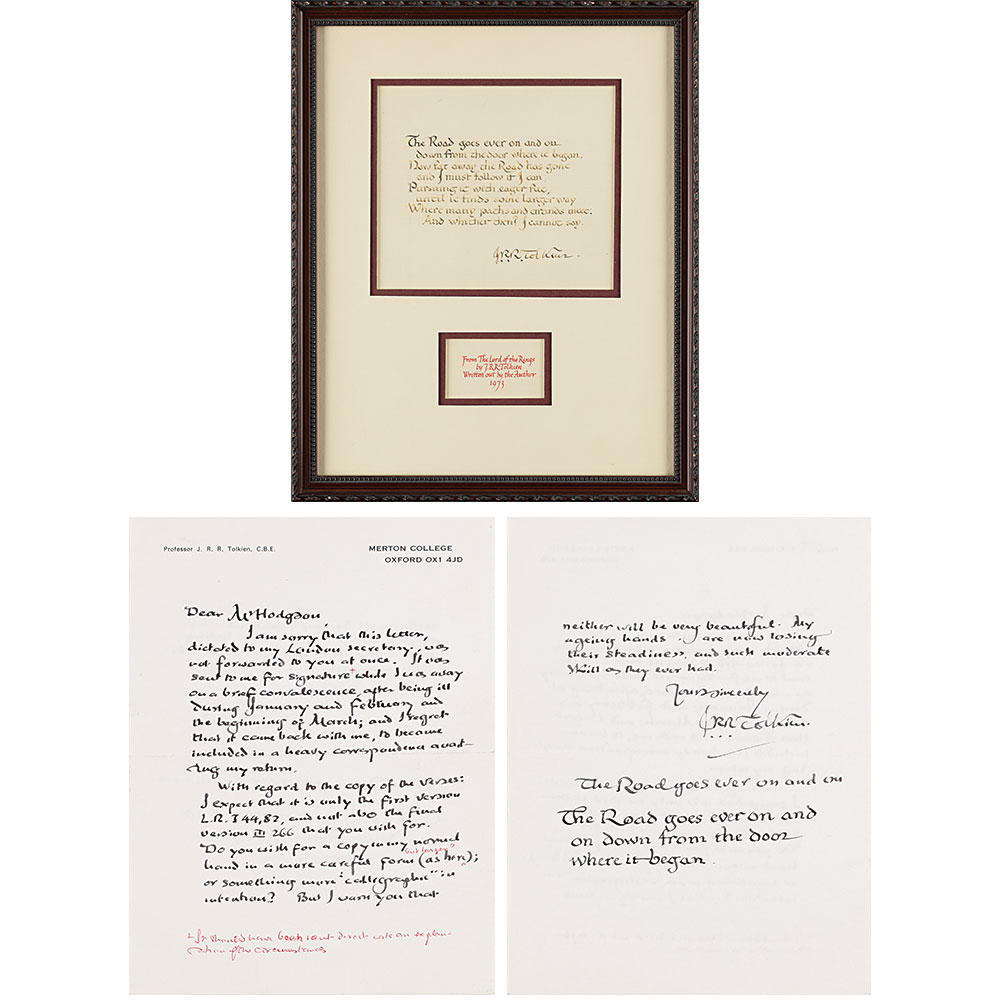 The Road goes ever on and on
down from the door where it began.
Now far away the Road has gone
and I must follow if I can
Pursuing it with eager feet,
until it finds some larger way
Where many paths and errands meet:
And whither then? I cannot say.
J.R.R. Tolkien.
From The Lord of the Rings
by J.R.R. Tolkien
Written out by the Author
1973
Professor J. R. R. Tolkien, C.B.E.
MERTON COLLEGE
OXFORD OX1 4JD
Dear Mr Hodgson,
I am sorry that this letter,
dictated to my London secretary, was
not forwarded to you at once. It was
sent to me for signature + while I was away
on a brief convalescence, after being ill
during January and February and
the beginning of March; and I regret
that it came back with me, to became
included in a heavy correspondence await-
ing my return.
With regard to the copy of the verses:
I expect that it is only the first version
L.R. I 44, 82, and not also the final
version III 266 that you wish for.
Do you wish for a copy in my normal
but larger
hand in a more careful form (as here);
or something more "calligraphic" in
intention? But I warn you that
+ It should have been sent direct with an explan-
ation of the circumstances
neither will be very beautiful. My
ageing hands are now losing
their steadiness, and such moderate
skill as they ever had.
Yours sincerely
J.R.R. Tolkien.
The Road goes ever on and on
The Road goes ever on and
on down from the door
where it began.